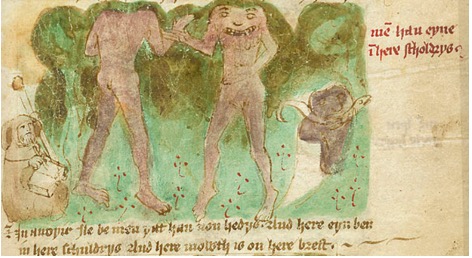 mē hau eyne
ī here scholdrys
In anoþir Ile be men þat han non hedys. And here eyn ben
in here schuldrys And here mowth is on here brest.